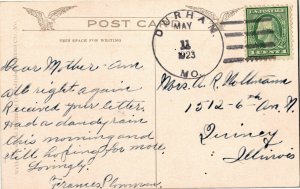 POST CARD
THIS SPACE FOR WRITING
DURHAM
MAY
11
1923
MO.
1 CENT 1
Dear Mother- am
all right again
Received your letter,
Had a dandy rain
this morning and
still hoping for more
Lovingly
Frances
Mrs. A. R.
1512-6th Av. N
Quincy
Illinois